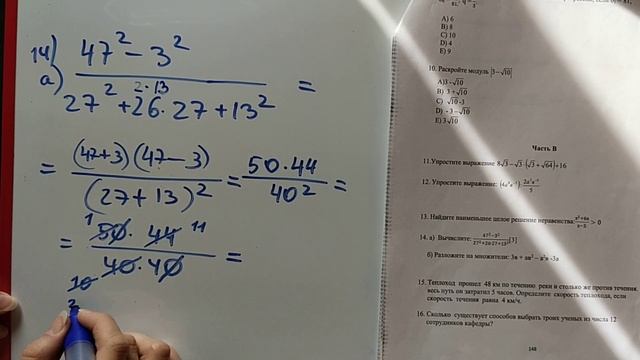 14) 47² - 3²
а) 27² + 26·27 + 13² =
2·13
= (47+3)(47-3) / (27+13)² = 50·44 / 40² =
= 50·44 / 40·40 =
1 11
10
2
А) 6
В) 8
С) 10
D) 4
Е) 9
10. Раскройте модуль |3-√10|
А)3 -√10
В) 3 +√10
С) √10 -3
D) - 3 –√10
Е) 3√10
Часть В
11.Упростите выражение 8√3 - √3·(√3 + √64)+16
12. Упростите выражение:
13. Найдите наименьшее целое решение неравенства: > 0
14. а) Вычислите: 47²-3² / 27²+26·27+13² [3]
б) Разложите на множители: 3n + an² – a²n -3a
15. Теплоход прошел 48 км по течению реки и столько же против течения.
весь путь он затратил 5 часов. Определите скорость теплохода, если
скорость течения равна 4 км/ч.
16. Сколько существует способов выбрать троих ученых из числа 12
сотрудников кафедры?
148